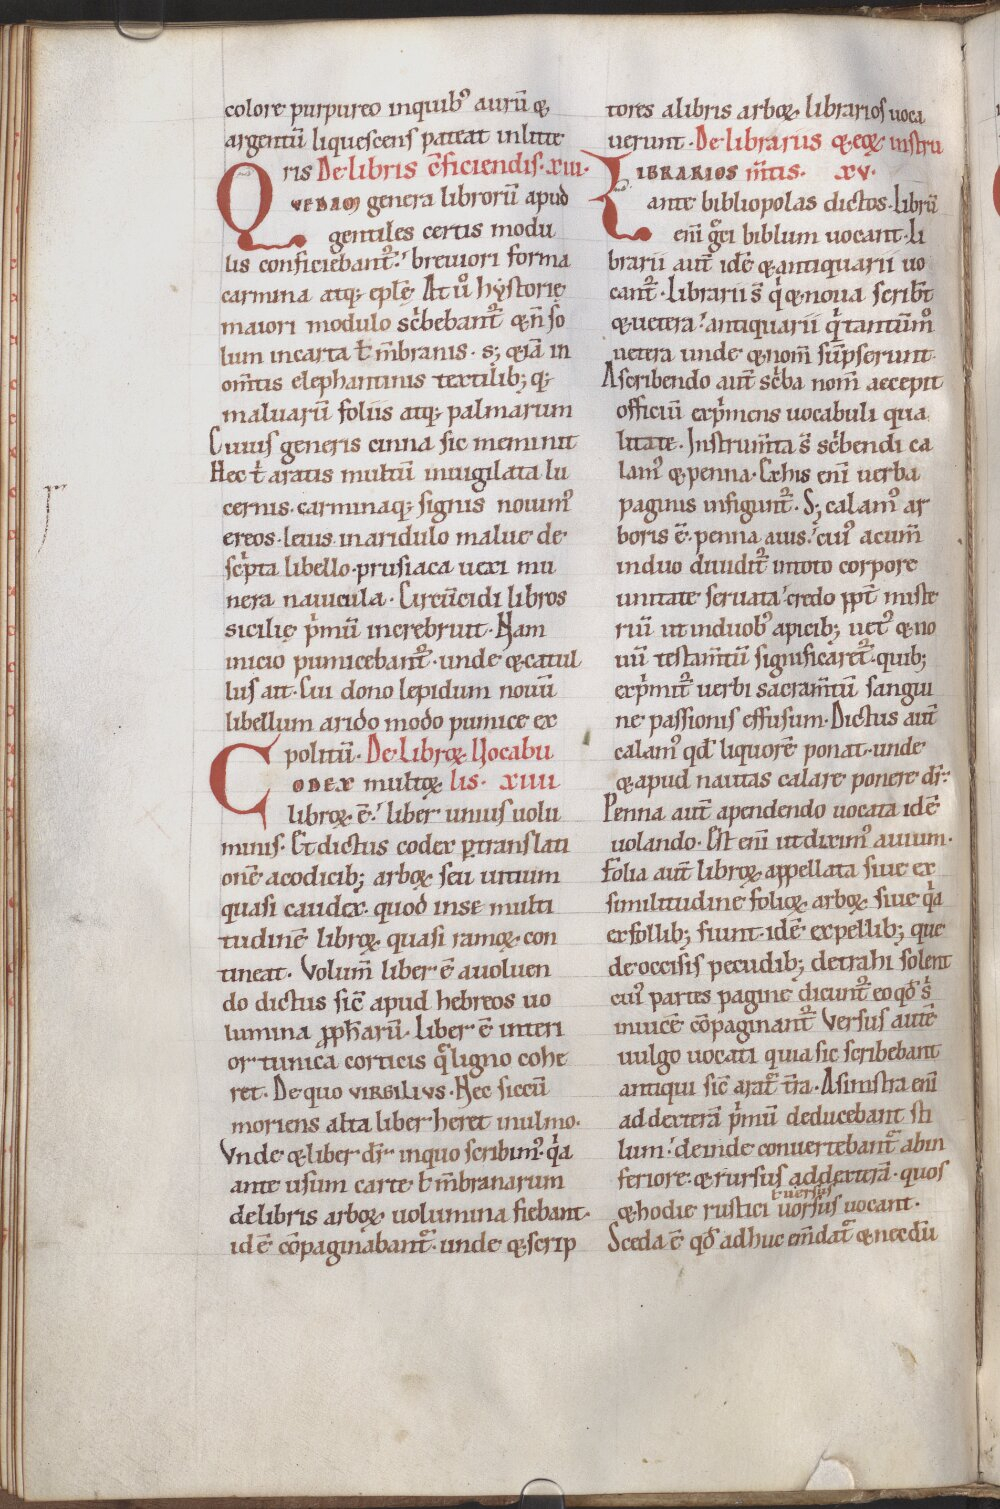 colore purpureo inquib⁹ aurū &
argentū liquescens pateat inlitte
ris De libris c̄ficiendis. xiii.
QVEDAM genera librorū apud
gentiles certis modu
lis conficiebant̄. breuiori forma
carmina atq; epl̄ę At u͛o hystorię
maiori modulo sc͛bebant̄ & n̄ so
lum incarta t̄ m̄branis. s; & iā in
om̄tis elephantinis textilib; q;
maluarū foliis atq; palmarum
Cuius generis cinna sic meminit
Hec t͛ aratis multū inuigilata lu
cernis. carminaq; signis nouim⁹
ereos. leuis inaridulo malue de
sc͛pta libello. prusiaca uexi mu
nera nauicula. Circūcidi libros
sicilię p͛mū increbruit. Nam
inicio pumicebant̄. unde & catul
lus ait. Cui dono lepidum nouū
libellum arido modo pumice ex
politū. De Libroꝝ Uocabu
CODEX multoꝝ lis. xiiii
libroꝝ. ē. liber unius uolu
minis. Et dictus codex ꝑtranslati
onē acodicib; arboꝝ seu uitium
quasi caudex. quod inse multi
tudinē libroꝝ. quasi ramoꝝ. con
tineat. Volum̄ liber ē auoluen
do dictus sic̄ apud hebreos uo
lumina ꝓph̄arū. liber ē interi
or tunica corticis q̄ ligno cohe
ret. De quo VIRGILIVS. Hec siccū
moriens alta liber heret inulmo.
Vnde & liber dr̄ inquo scribim⁹. q͛a
ante usum carte t̄ m̄branarum
delibris arboꝝ uolumina fiebant.
idē cōpaginabant̄. unde & scrip
tores alibris arboꝝ librarios uoca
uerunt. De librariis & eoꝝ instru
LIBRARIOS m̄tis. xv.
ante bibliopolas dictos. librū
enī g͛ci biblum uocant. li
brarii aut̄ idē & antiquarii uo
cant̄. Librarii s̄ q͛ & noua scribt̄
& uetera. antiquarii q͛ tantūm⁰
uetera unde & nom̄ sūpserunt.
Ascribendo aut̄ sc͛ba nom̄ aecepit
officiū exp͛mens uocabuli qua
litate. Instrum̄ta s̄ sc͛bendi ca
lam⁹ & penna. Exhis enī uerba
paginis infigunt̄. S; calam⁹ ar
boris ē. penna auis. cui⁹ acum̄
induo diuidit̄ intoto corpore
unitate seruata. credo ꝓpt̄ miste
riū ut induob⁹ apicib; uet⁹ & no
uū testam̄tū significaret̄. quib;
exp͛mit̄ uerbi sacram̄tū sangui
ne passionis effusum. Dictus aut̄
calam⁹ qd̄ liquorē ponat. unde
& apud nautas calare ponere dr̄.
Penna aut̄ apendendo uocata idē
uolando. Est enī ut dixim⁹ auium.
Folia aut̄ libroꝝ appellata siue ex
similitudine folioꝝ arboꝝ siue q͛a
exfollib; fiunt. idē expellib; que
deoccisis pecudib; detrahi solent
cui⁹ partes pagine dicunt̄ eo qd̄ s͛
inuicē cōpaginant̄ Versus autē
uulgo uocati quia sic scribebant
antiqui sic̄ arat̄ t̄ra. Asinistra enī
addexterā p͛mū deducebant sti
lum. deinde conuertebant̄ abin
feriore. & rursus addexterā. quos
t̄ uersus
& hodie rustici uorsus uocant.
Sceda ē qd̄ adhuc em̄dat̄ & necdū